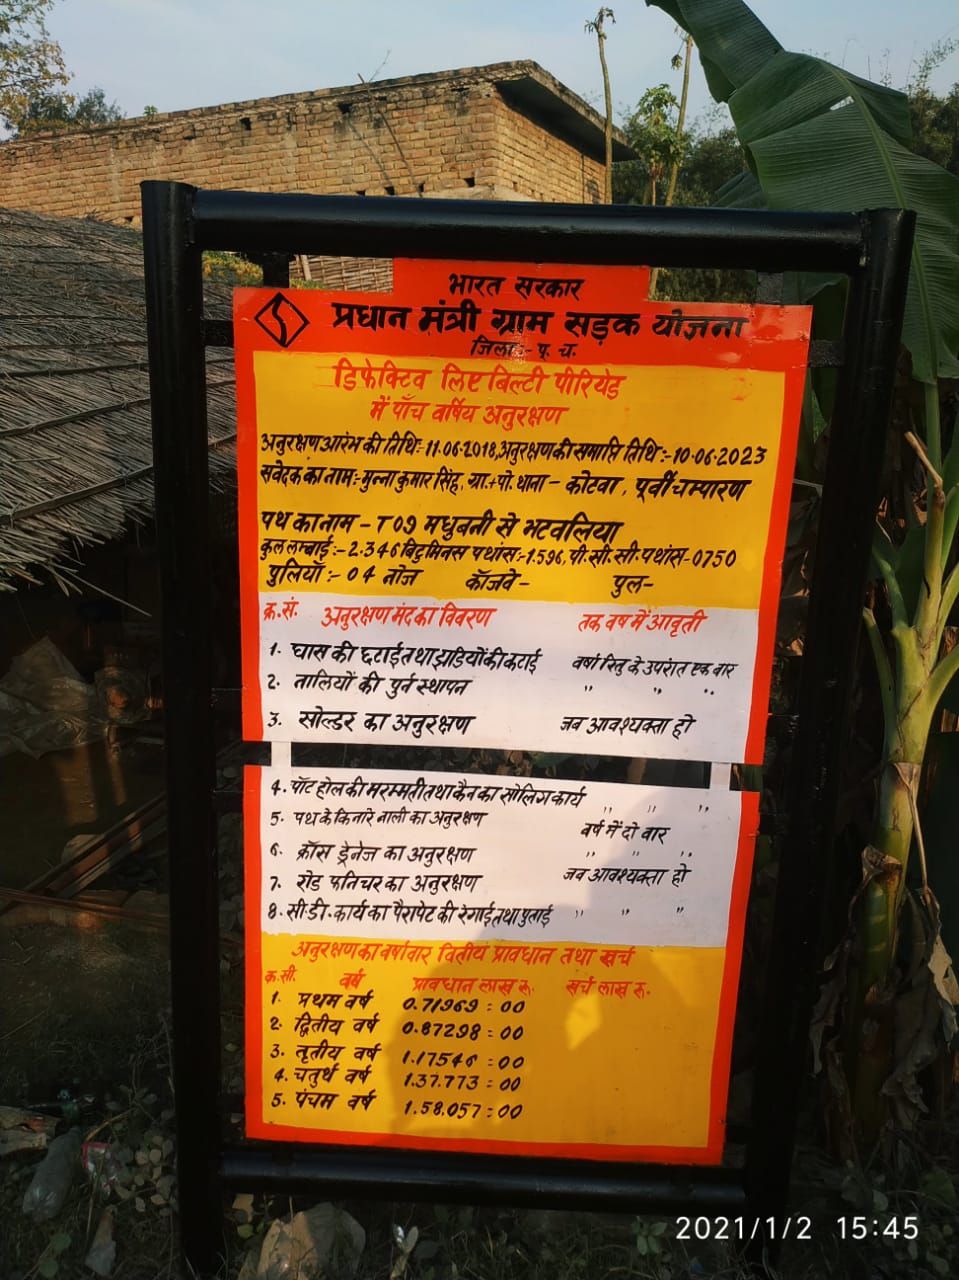 भारत सरकार
प्रधान मंत्री ग्राम सड़क योजना
जिला:- पू. च.
डिफेक्टिव लिए बिल्टी पीरियेड
में पाँच वर्षिय अनुरक्षण
अनुरक्षण आरंभ की तिथि:- 11.06.2018, अनुरक्षण की समाप्ति तिथि:- 10.06.2023
संवेदक का नाम:- मुन्ना कुमार सिंह, ग्रा.+पो. थाना - कोटवा, पूर्वी चम्पारण
पथ का नाम - T09 मधुबनी से भटवलिया
कुल लम्बाई:- 2.346 बिटुमिनस पथांस:- 1.596, पी.सी.सी. पथांस- 0750
पुलियाँ:- 04 नोज कॉजवे- पुल-
क्र.सं. अनुरक्षण मंद का विवरण तक वर्ष में आवृती
1. घास की छटाई तथा झाडियों की कटाई वर्षा रितु के उपरांत एक वार
2. नालियों की पुर्न स्थापन " " "
3. सोल्डर का अनुरक्षण जब आवश्यक्ता हो
4. पॉट होल की मरम्मती तथा कैन का सोलिग कार्य " " "
5. पथ के किनारे नाली का अनुरक्षण वर्ष में दो वार
6. क्रॉस ड्रेनेज का अनुरक्षण " " "
7. रोड फनिचर का अनुरक्षण जब आवश्यक्ता हो
8. सी.डी. कार्य का पैरापेट की रंगाई तथा पुताई " " "
अनुरक्षण का वर्षावार वितीय प्रावधान तथा खर्च
क्र.सी. वर्ष प्रावधान लाख रू. खर्च लाख रू.
1. प्रथम वर्ष 0.71969:00
2. द्वितीय वर्ष 0.87298:00
3. तृतीय वर्ष 1.17546:00
4. चतुर्थ वर्ष 1.37.773:00
5. पंचम वर्ष 1.58.057:00
2021/1/2 15:45